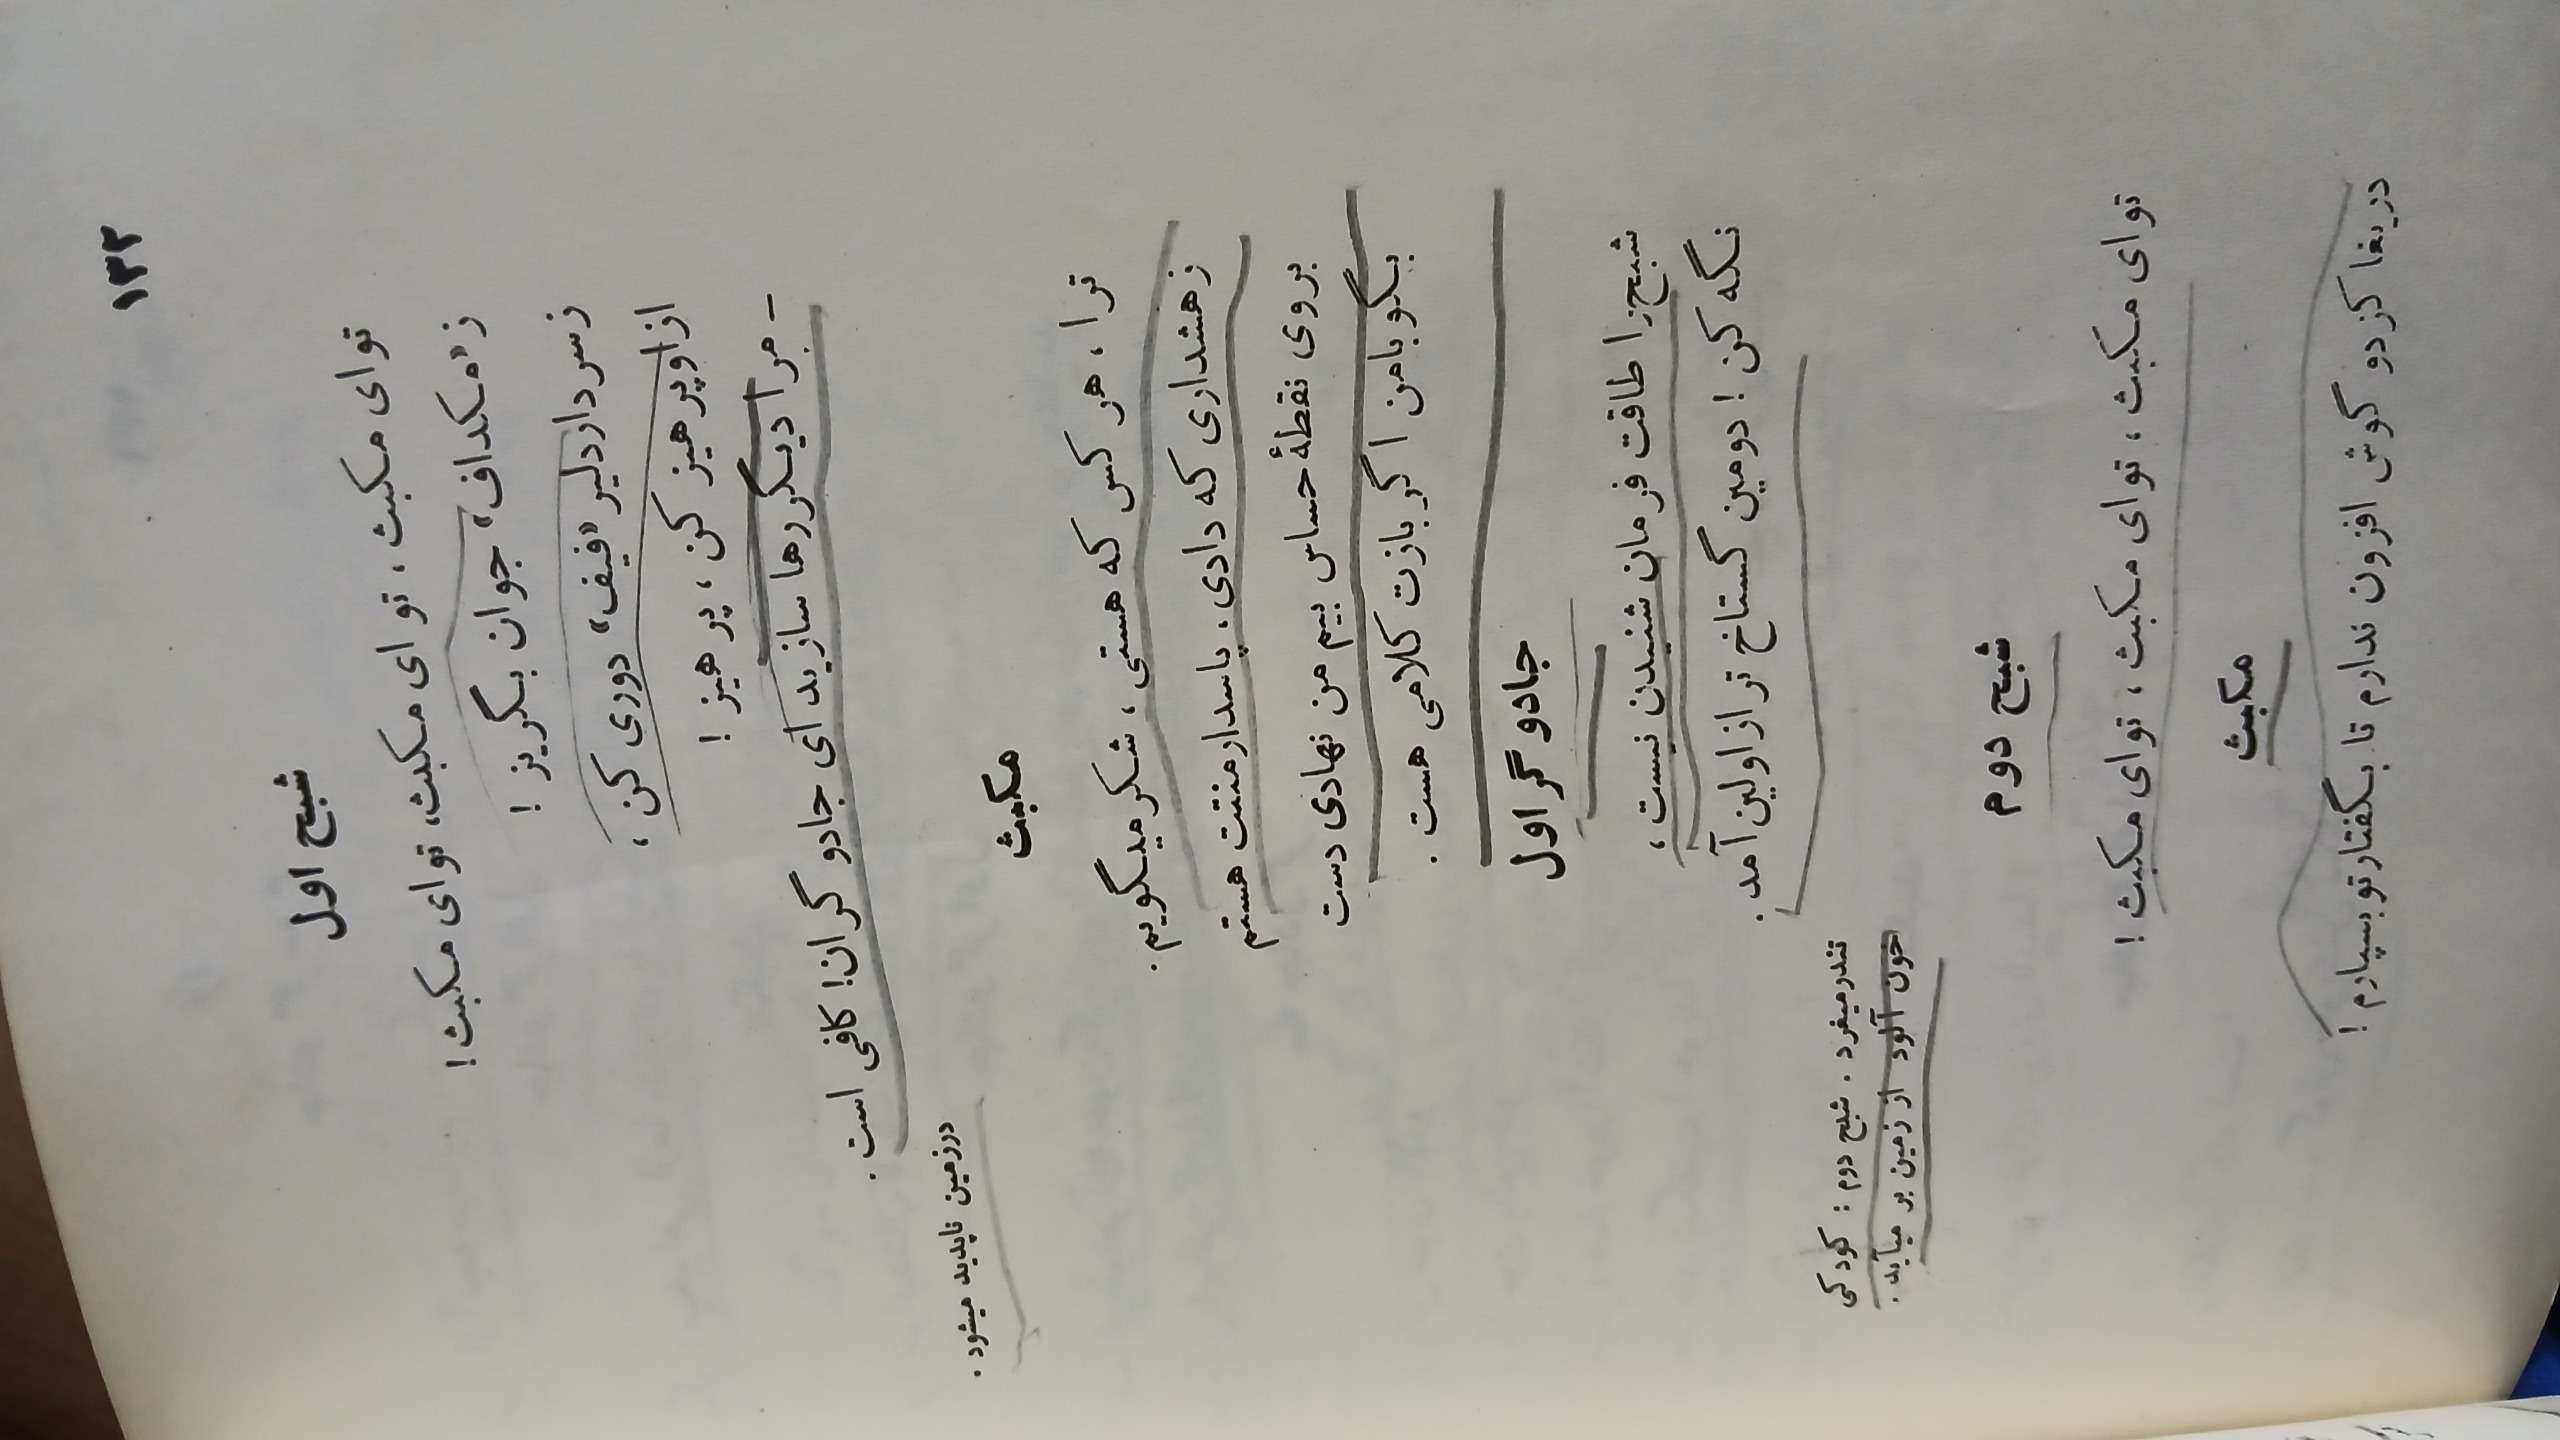 ۱۳۲
شبح اول
تو ای مکبث، تو ای مکبث، تو ای مکبث!
ز «مکداف» جوان بگریز!
ز سردار دلیر «فیف» دوری کن،
از او پرهیز کن، پرهیز!
- مرا دیگر رها سازید ای جادوگران! کافی است.
در زمین ناپدید میشود.
مکبث
ترا، هر کس که هستی، شکر میگویم.
ز هشداری که دادی، پاسدار منتت هستم
بروی نقطهٔ حساس بیم من نهادی دست
بگو با من اگر بازت کلامی هست.
جادوگر اول
شبح را طاقت فرمان شنیدن نیست،
نگه کن! دومین گستاخ تر از اولین آمد.
تندر میغرد. شبح دوم: کودکی
خون آلود از زمین بر میآید.
شبح دوم
تو ای مکبث، تو ای مکبث، تو ای مکبث!
مکبث
دریغا کز دو گوش افزون ندارم تا بگفتار تو بسپارم!